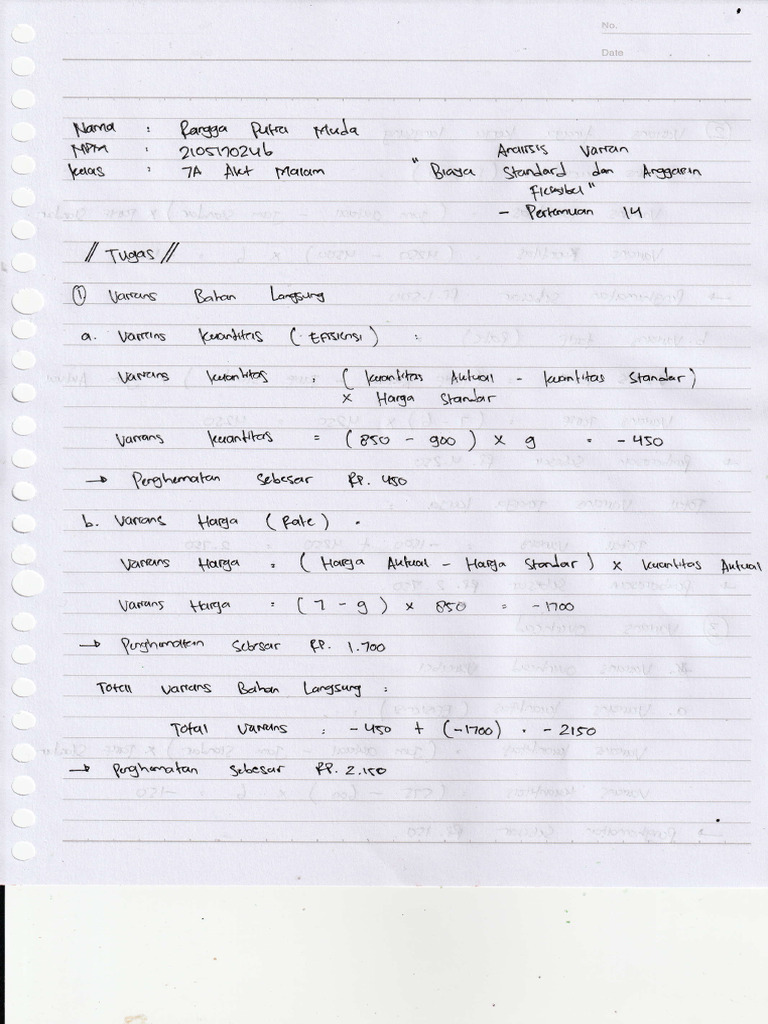 No.
Date
Nama : Rangga Putra Muda
NPM : 2105170246
Kelas : 7A Akt Malam
Analisis Varian
"Biaya Standard dan Anggaran
Fleksibel"
- Pertemuan 14
// Tugas //
① Varians Bahan Langsung
a. Varians Kuantitas (Efisiensi) :
Varians Kuantitas : (Kuantitas Aktual - Kuantitas Standar)
× Harga Standar
Varians Kuantitas = (850 - 900) × 9 = -450
→ Penghematan Sebesar Rp. 450
b. Varians Harga (Rate) .
Varians Harga : (Harga Aktual - Harga Standar) × Kuantitas Aktual
Varians Harga : (7 - 9) × 850 = -1700
→ Penghematan Sebesar Rp. 1.700
Total Varians Bahan Langsung :
Total Varians : -450 + (-1700) = -2150
→ Penghematan Sebesar Rp. 2.150